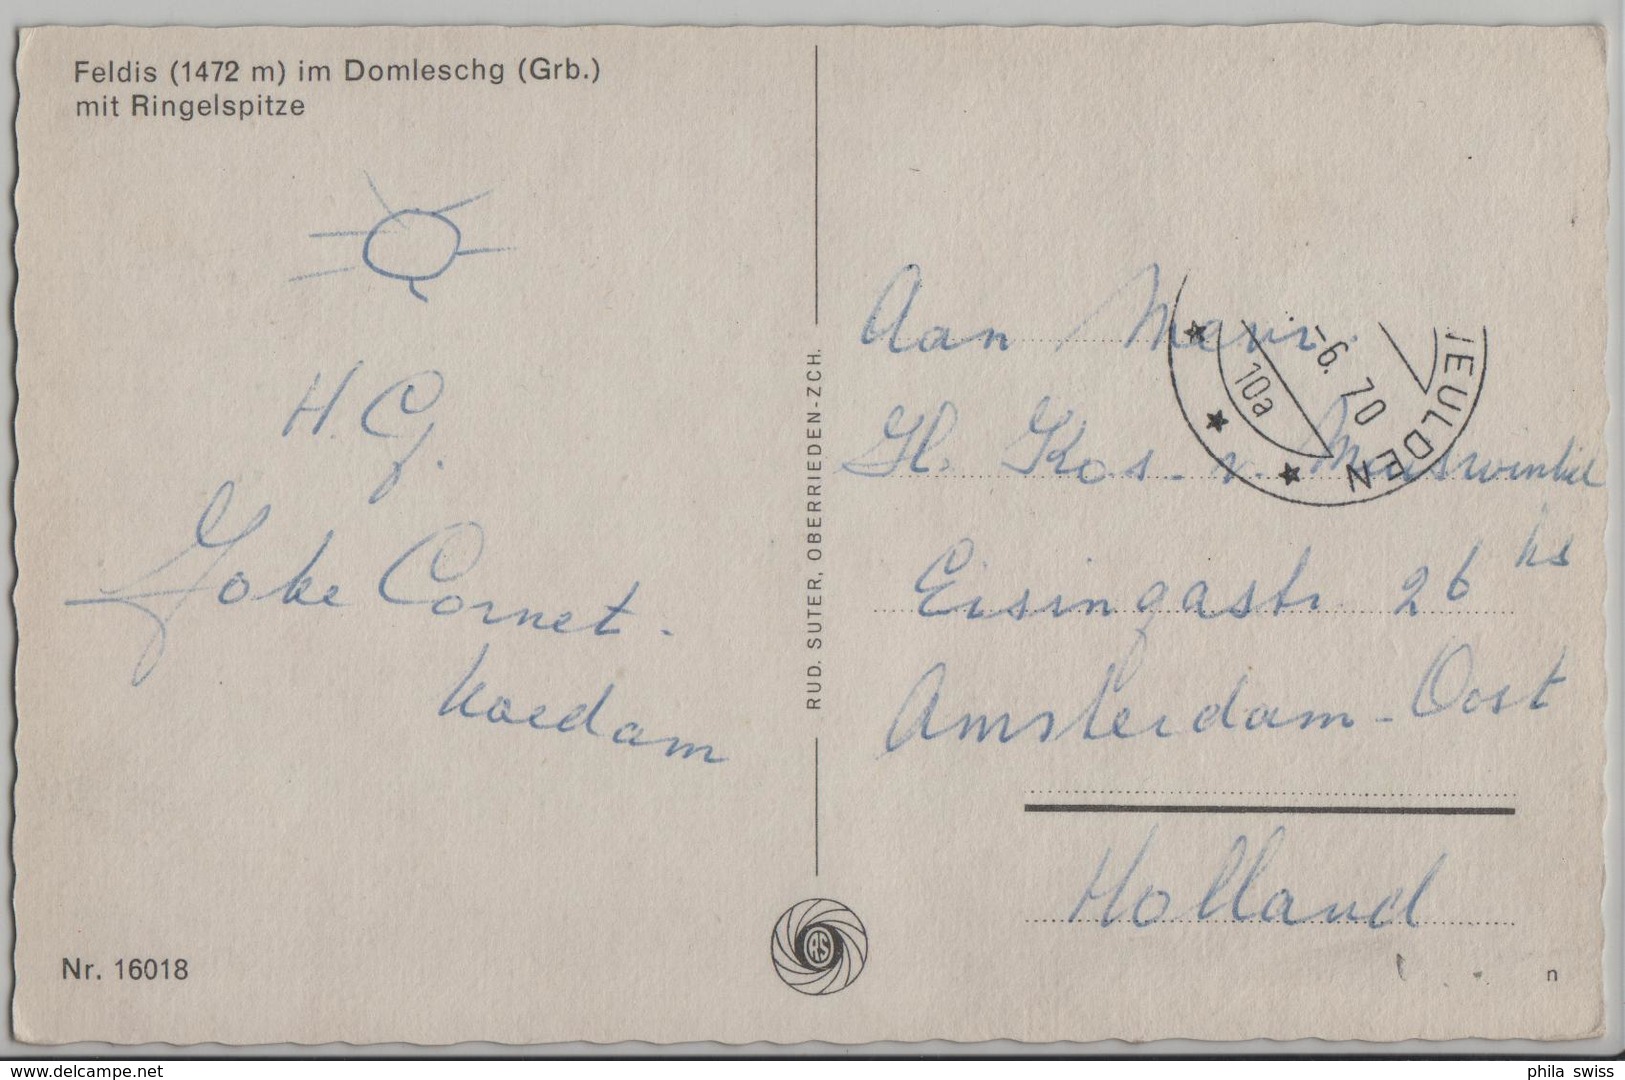 Feldis (1472 m) im Domleschg (Grb.)
mit Ringelspitze
H. G.
Joke Cornet-
Koedam
Nr. 16018
RUD. SUTER, OBERRIEDEN-ZCH.
RS
Aan Mevr.
Gl. Kos-v. Meeuswinkel
Eisingastr. 26 hs
Amsterdam-Oost
Holland
-6. 70
10a
IEULDEN
n
delcampe.net
phila swiss